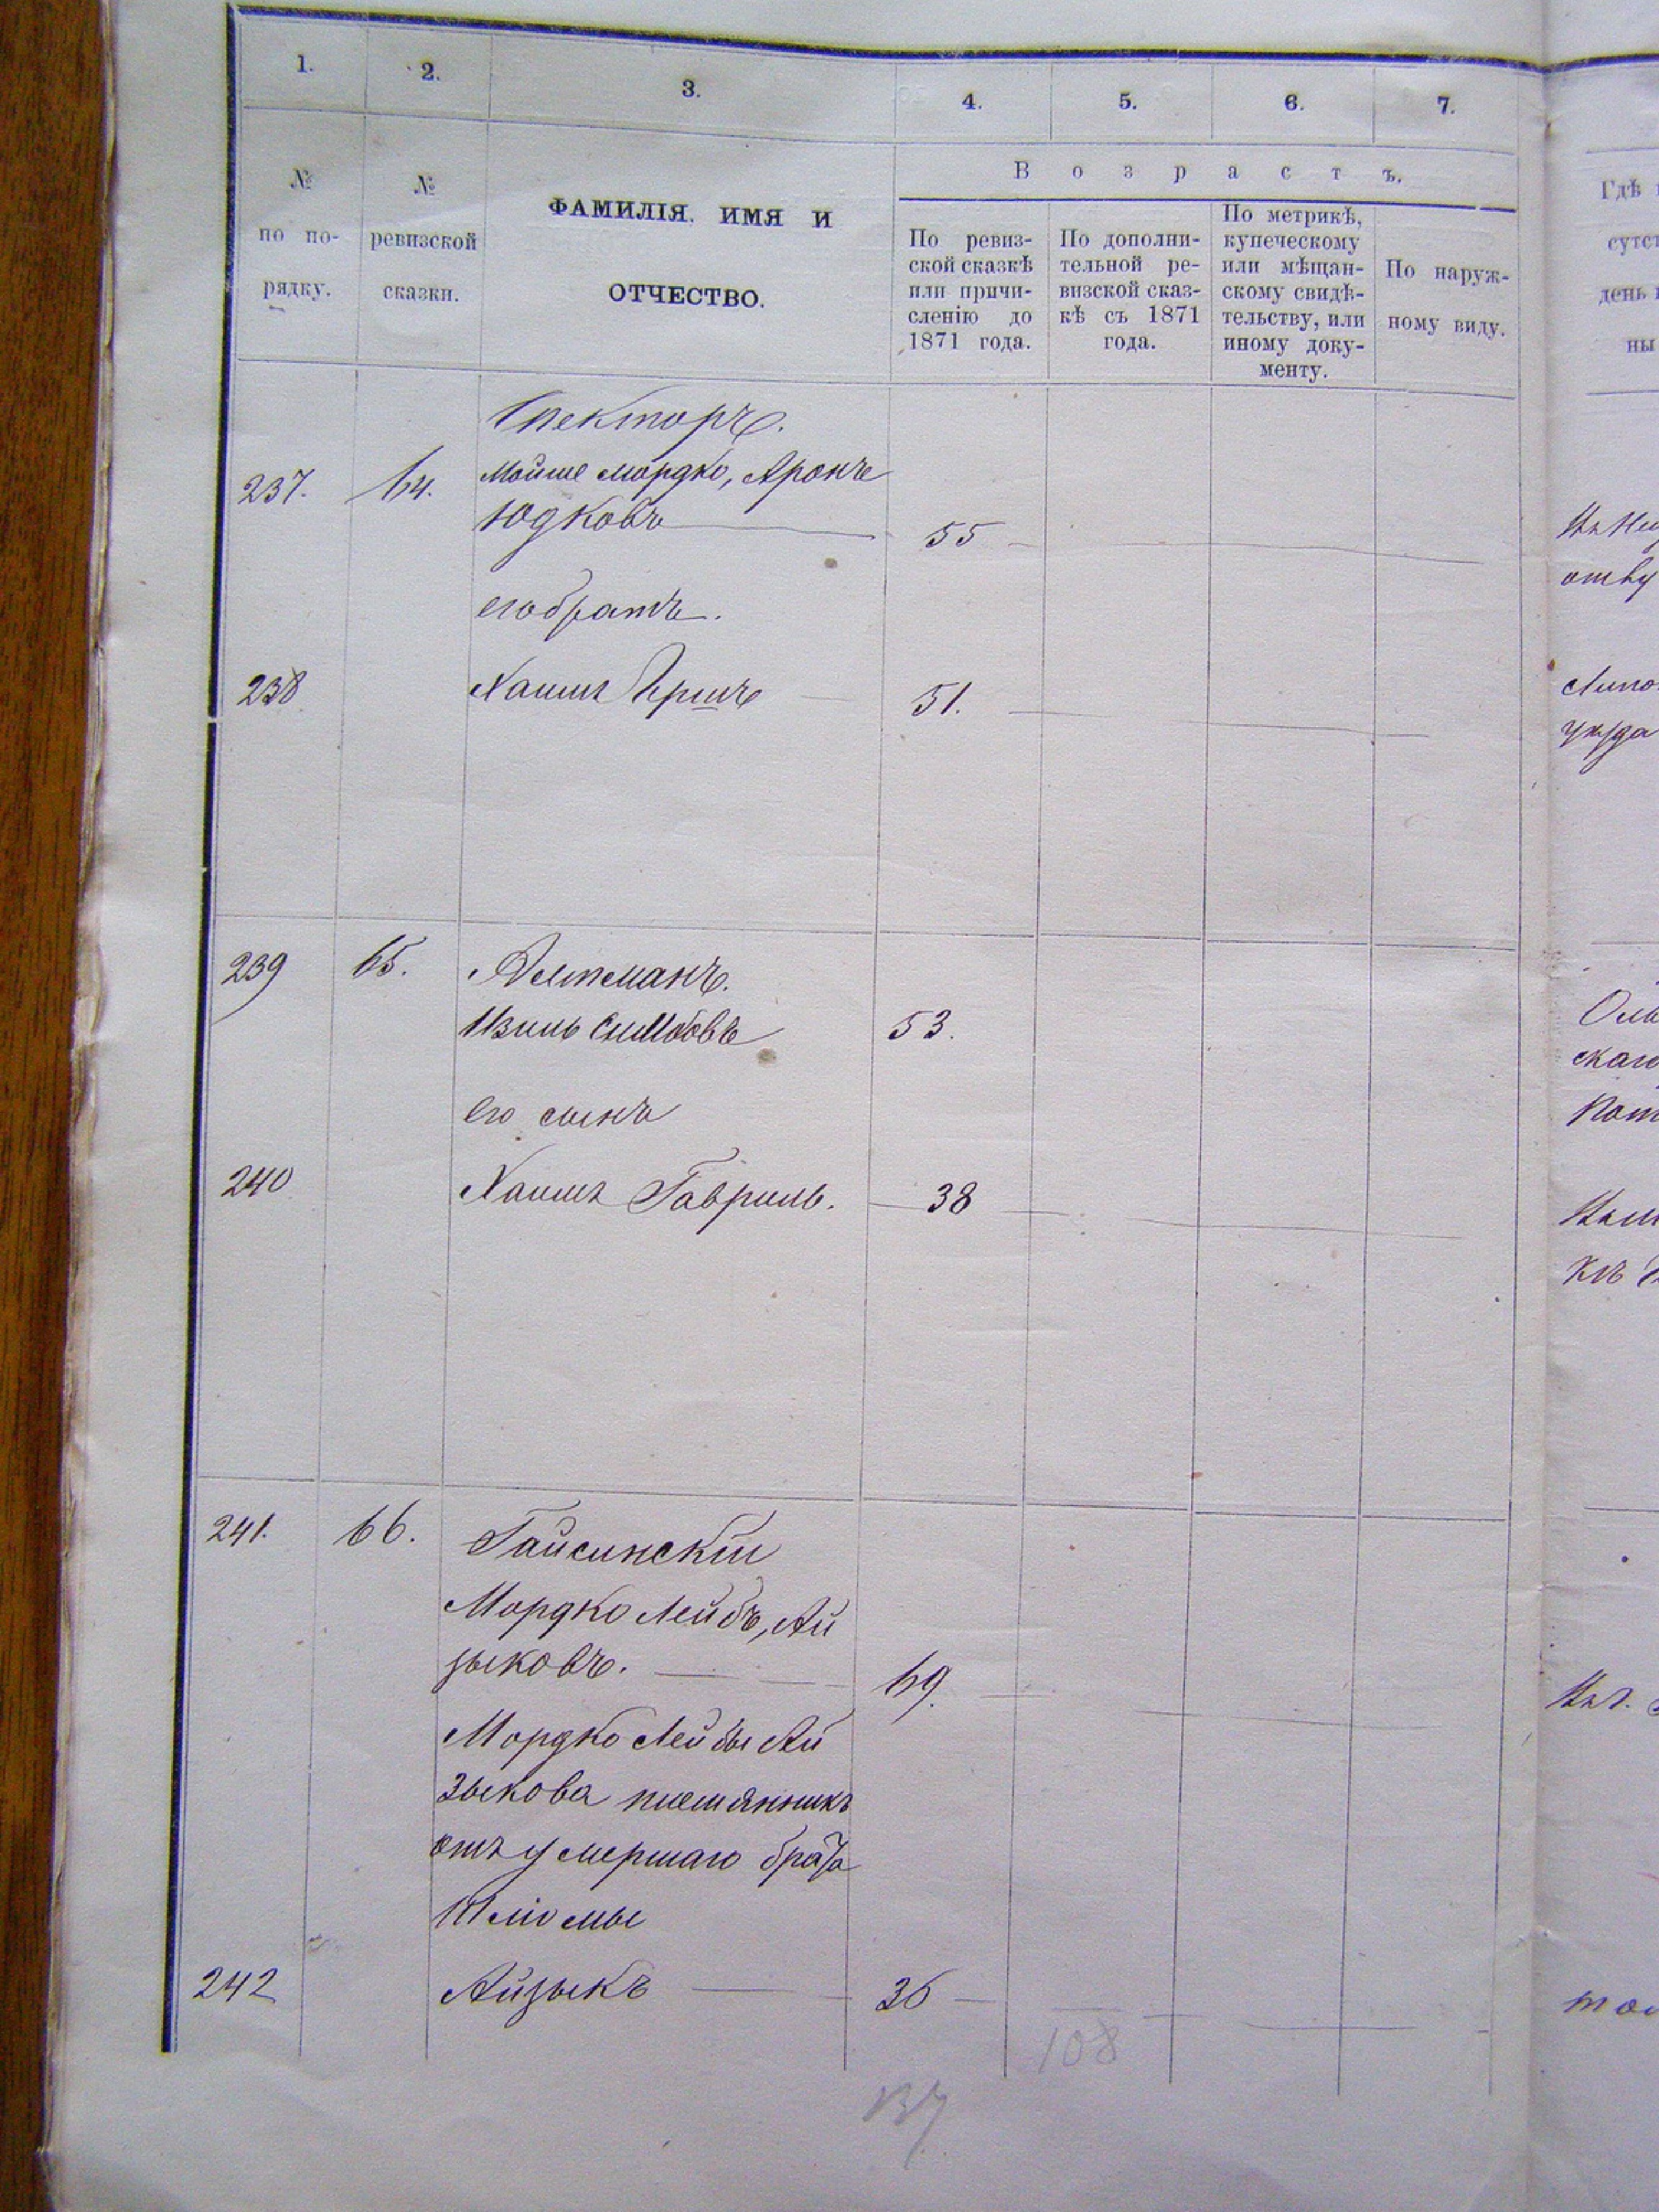 1. 2. 3. 4. 5. 6. 7.
№ по по-рядку.
№ ревизской сказки.
ФАМИЛІЯ, ИМЯ И
ОТЧЕСТВО.
Возрастъ.
По ревиз-
ской сказкѣ
или причи-
сленію до
1871 года.
По дополни-
тельной ре-
визской сказ-
кѣ съ 1871
года.
По метрикѣ,
купеческому
или мѣщан-
скому свидѣ-
тельству, или
иному доку-
менту.
По наруж-
ному виду.
Гдѣ
сутст
день
ны
Спекторъ.
237. 64. Мойше Мордко, Аронъ
Юдковъ 55
его братъ.
238 Хаимъ Гершъ 51.
239 65. Альтманъ.
Изиль 53.
его сынъ
240 Хаимъ Гавриль. 38
241. 66. Гайсинскій
Мордко Лейбъ, Ай
зыковъ. 69.
Мордко Лейбы Ай
зыкова племянникъ
отъ умершаго брата
Шліомы
242 Айзыкъ 36
108